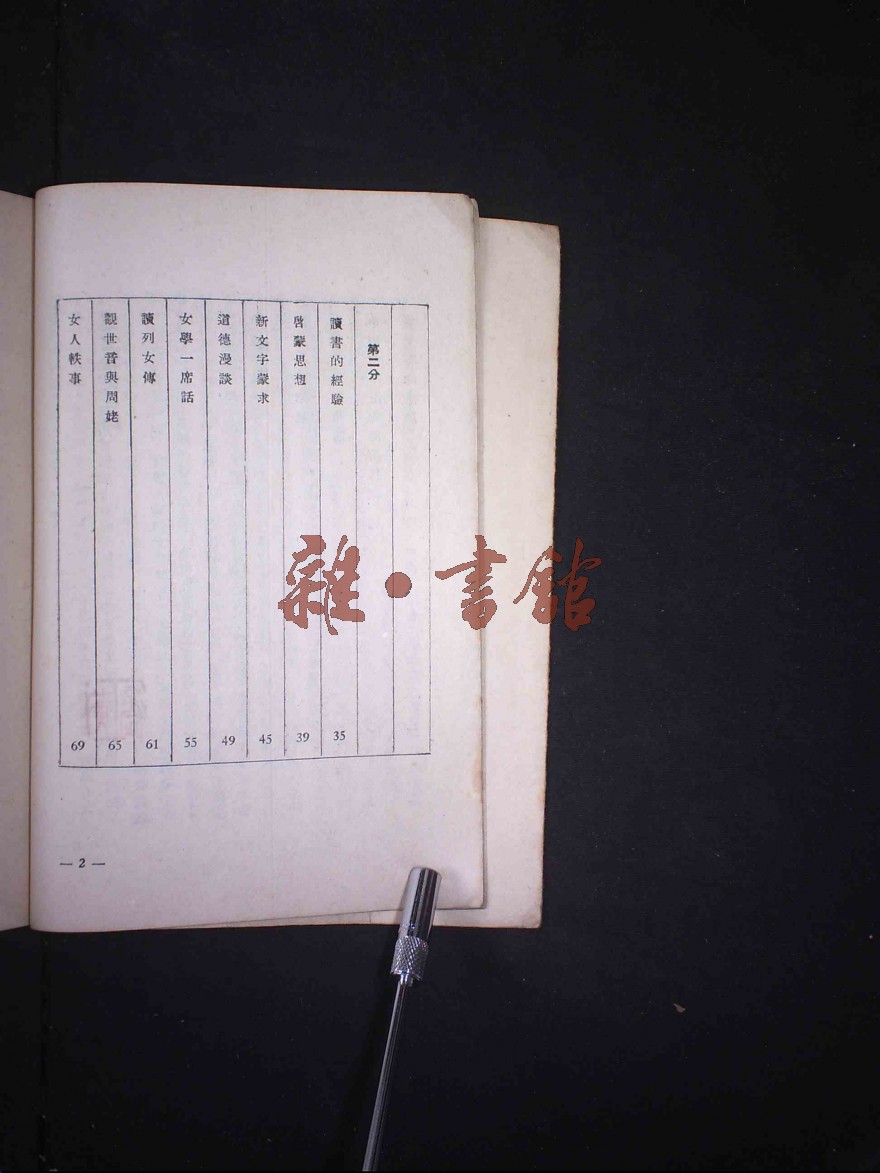 第二分
讀書的經驗 35
啓蒙思想 39
新文字蒙求 45
道德漫談 49
女學一席話 55
讀列女傳 61
觀世音與周姥 65
女人軼事 69
— 2 —
雜·書館